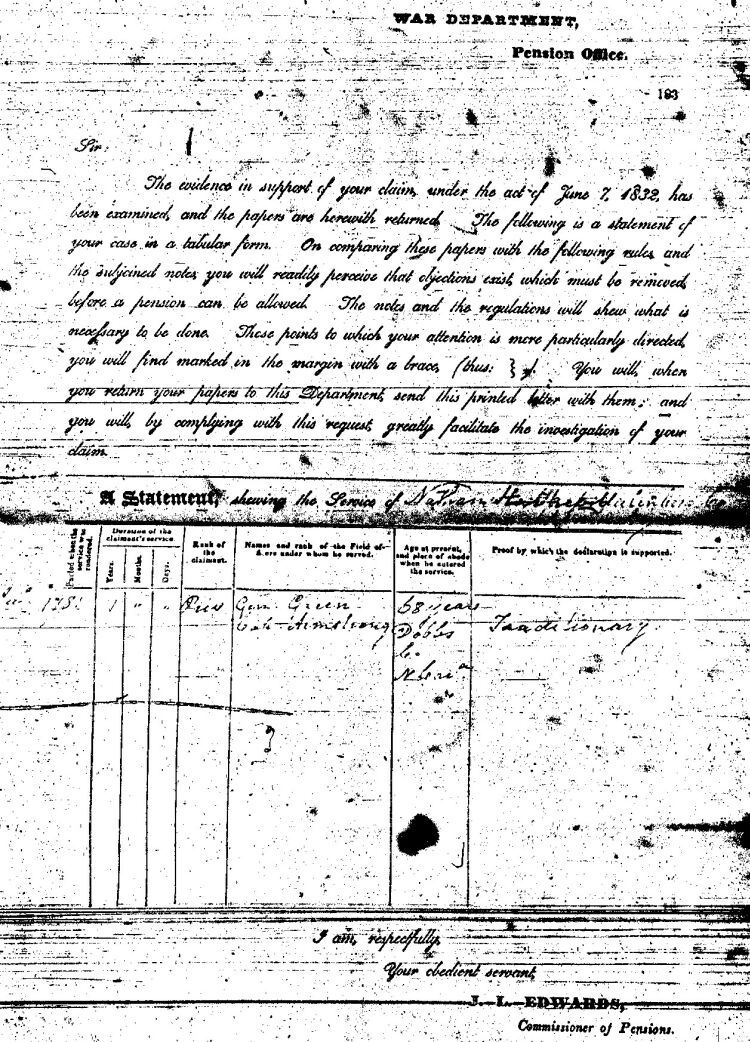 WAR DEPARTMENT,
Pension Office.
183
Sir:
The evidence in support of your claim, under the act of June 7, 1832, has
been examined, and the papers are herewith returned. The following is a statement of
your case in a tabular form. On comparing these papers with the following rules, and
the subjoined notes, you will readily perceive that objections exist, which must be removed,
before a pension can be allowed. The notes and the regulations will shew what is
necessary to be done. Those points to which your attention is more particularly directed,
you will find marked in the margin with a brace, (thus: }). You will, when
you return your papers to this Department, send this printed letter with them; and
you will, by complying with this request, greatly facilitate the investigation of your
claim.
A Statement, shewing the Service of
Period when the service was rendered.
Duration of the claimant's service
Years.
Months.
Days.
Rank of the claimant.
Names and rank of the Field officers under whom he served.
Age at present, and place of abode when he entered the service.
Proof by which the declaration is supported.
1 " "
Gen Green
Armstrong
68 years
Dobbs
Co
Traditionary
I am, respectfully,
Your obedient servant,
J. L. EDWARDS,
Commissioner of Pensions.